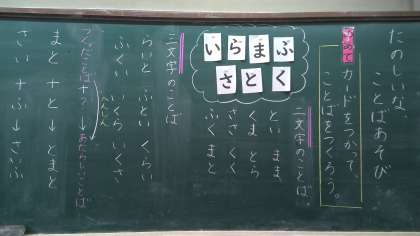 たのしいな、
ことばあそび
めあて
カードをつかって、
ことばをつくろう。
いらまぶ
さとく
二文字のことば
とい まま
くま とら
ささ くく
ふく まと
三文字のことば
らいと ふとい くらい
ふくい いくら いくさ
へんしん
つくったことば+?→あたらしいことば
まと + と → とまと
さい + ふ → さいふ